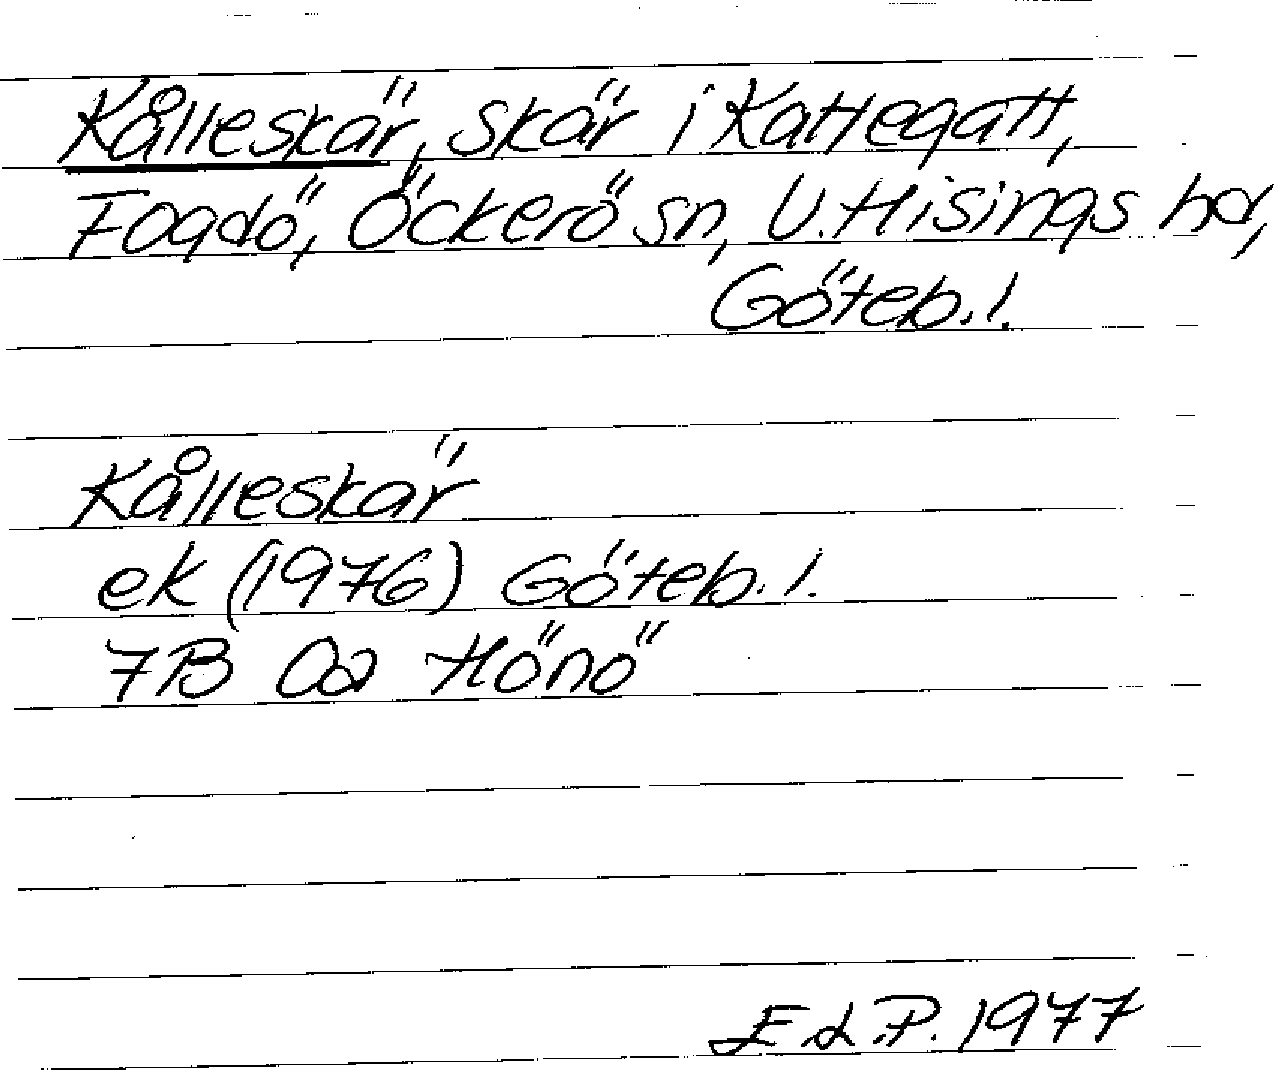 Kålleskär, skär i Kattegatt,
Fogdö, Öckerö sn, V. Hisings hd,
Göteb. l.
Kålleskär
ek (1976) Göteb. l.
7B 0a Hönö
1977